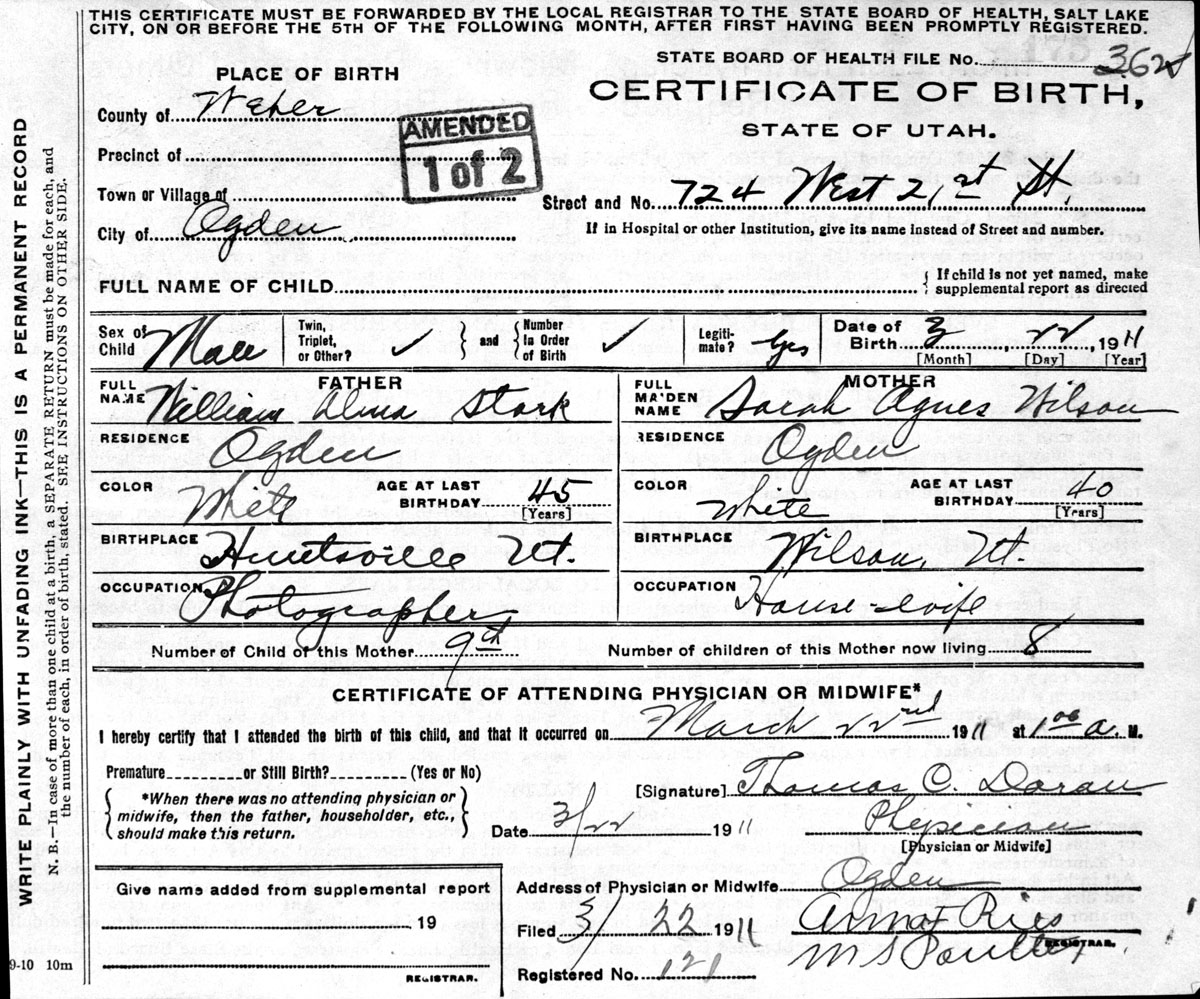 THIS CERTIFICATE MUST BE FORWARDED BY THE LOCAL REGISTRAR TO THE STATE BOARD OF HEALTH, SALT LAKE
CITY, ON OR BEFORE THE 5TH OF THE FOLLOWING MONTH, AFTER FIRST HAVING BEEN PROMPTLY REGISTERED.
WRITE PLAINLY WITH UNFADING INK—THIS IS A PERMANENT RECORD
N. B.—In case of more than one child at a birth, a SEPARATE RETURN must be made for each, and
the number of each, in order of birth, stated. SEE INSTRUCTIONS ON OTHER SIDE.
PLACE OF BIRTH
County of Weber
Precinct of
Town or Village of
City of Ogden
AMENDED
1 of 2
STATE BOARD OF HEALTH FILE No.
CERTIFICATE OF BIRTH,
STATE OF UTAH.
Street and No. 724 West 21st St.
If in Hospital or other Institution, give its name instead of Street and number.
FULL NAME OF CHILD
If child is not yet named, make
supplemental report as directed
Sex of Child Male
Twin, Triplet, or Other? ✓
and
Number in Order of Birth ✓
Legitimate? Yes
Date of Birth 3 22, 1911
[Month] [Day] [Year]
FATHER
FULL NAME William Alma Stark
RESIDENCE Ogden
COLOR White
AGE AT LAST BIRTHDAY 45
[Years]
BIRTHPLACE Huntsville Ut.
OCCUPATION Photographer
MOTHER
FULL MAIDEN NAME Sarah Agnes Wilson
RESIDENCE Ogden
COLOR White
AGE AT LAST BIRTHDAY 40
[Years]
BIRTHPLACE Wilson, Ut.
OCCUPATION House-wife
Number of Child of this Mother 9th
Number of children of this Mother now living 8
CERTIFICATE OF ATTENDING PHYSICIAN OR MIDWIFE*
I hereby certify that I attended the birth of this child, and that it occurred on March 22nd 1911 at 1 00 a. M.
Premature or Still Birth? (Yes or No)
*When there was no attending physician or
midwife, then the father, householder, etc.,
should make this return.
[Signature] Thomas C. Doran
Date 3/22 1911
Physician
[Physician or Midwife]
Give name added from supplemental report
19
REGISTRAR.
Address of Physician or Midwife Ogden
Filed 3/22 1911
M S Poulter
REGISTRAR.
Registered No. 121
9-10 10m